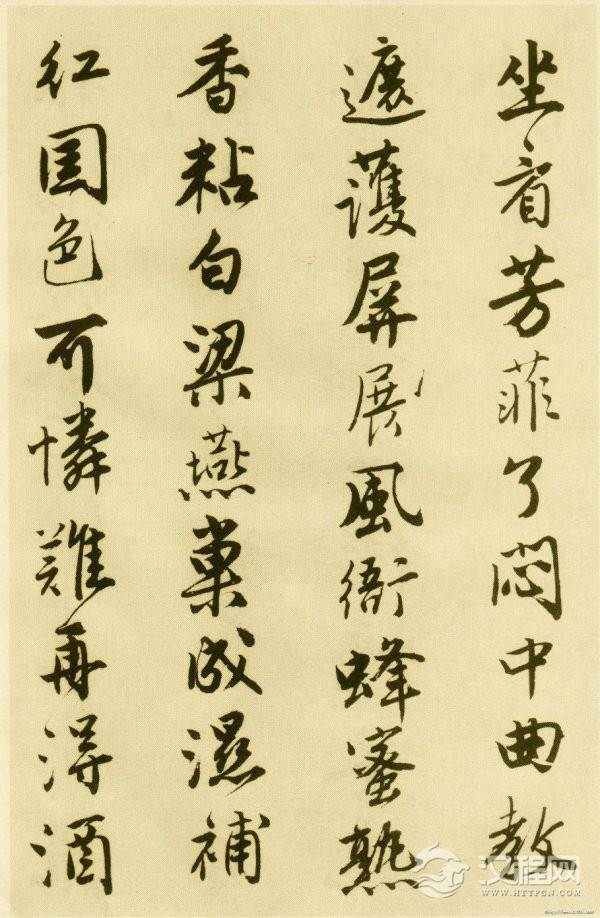 坐看芳菲了悶中曲教
遮護屏展風衙蜂蜜熟
香粘白梁燕巢成濕補
紅國色可憐難再得酒
汉程网
HTTPCN.COM